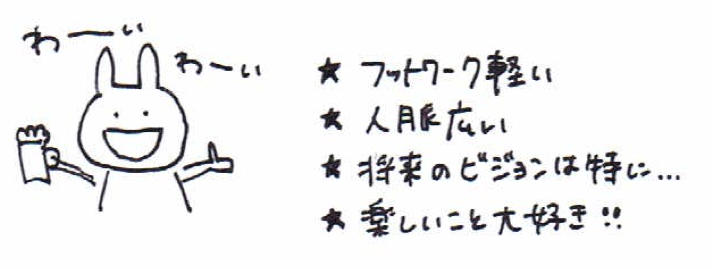 わーい
わーい
★ フットワーク軽い
★ 人脈広い
★ 将来のビジョンは特に...
★ 楽しいこと大好き!!